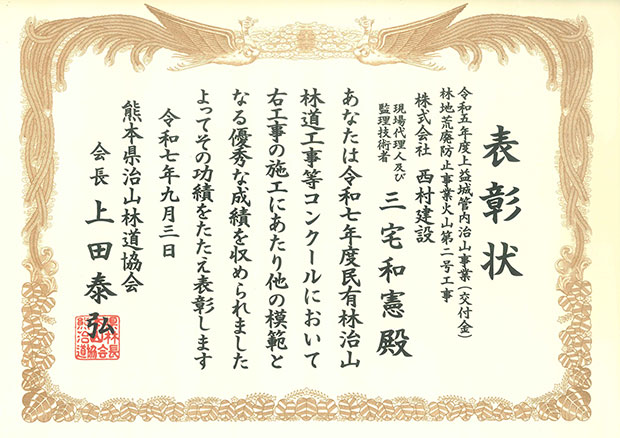 表彰状
令和五年度上益城管内治山事業(交付金)
林地荒廃防止事業火山第二号工事
株式会社 西村建設
現場代理人及び
監理技術者
三宅和憲殿
あなたは令和七年度民有林治山
林道工事等コンクールにおいて
右工事の施工にあたり他の模範と
なる優秀な成績を収められました
よってその功績をたたえ表彰します
令和七年九月三日
熊本県治山林道協会
会長 上田泰弘